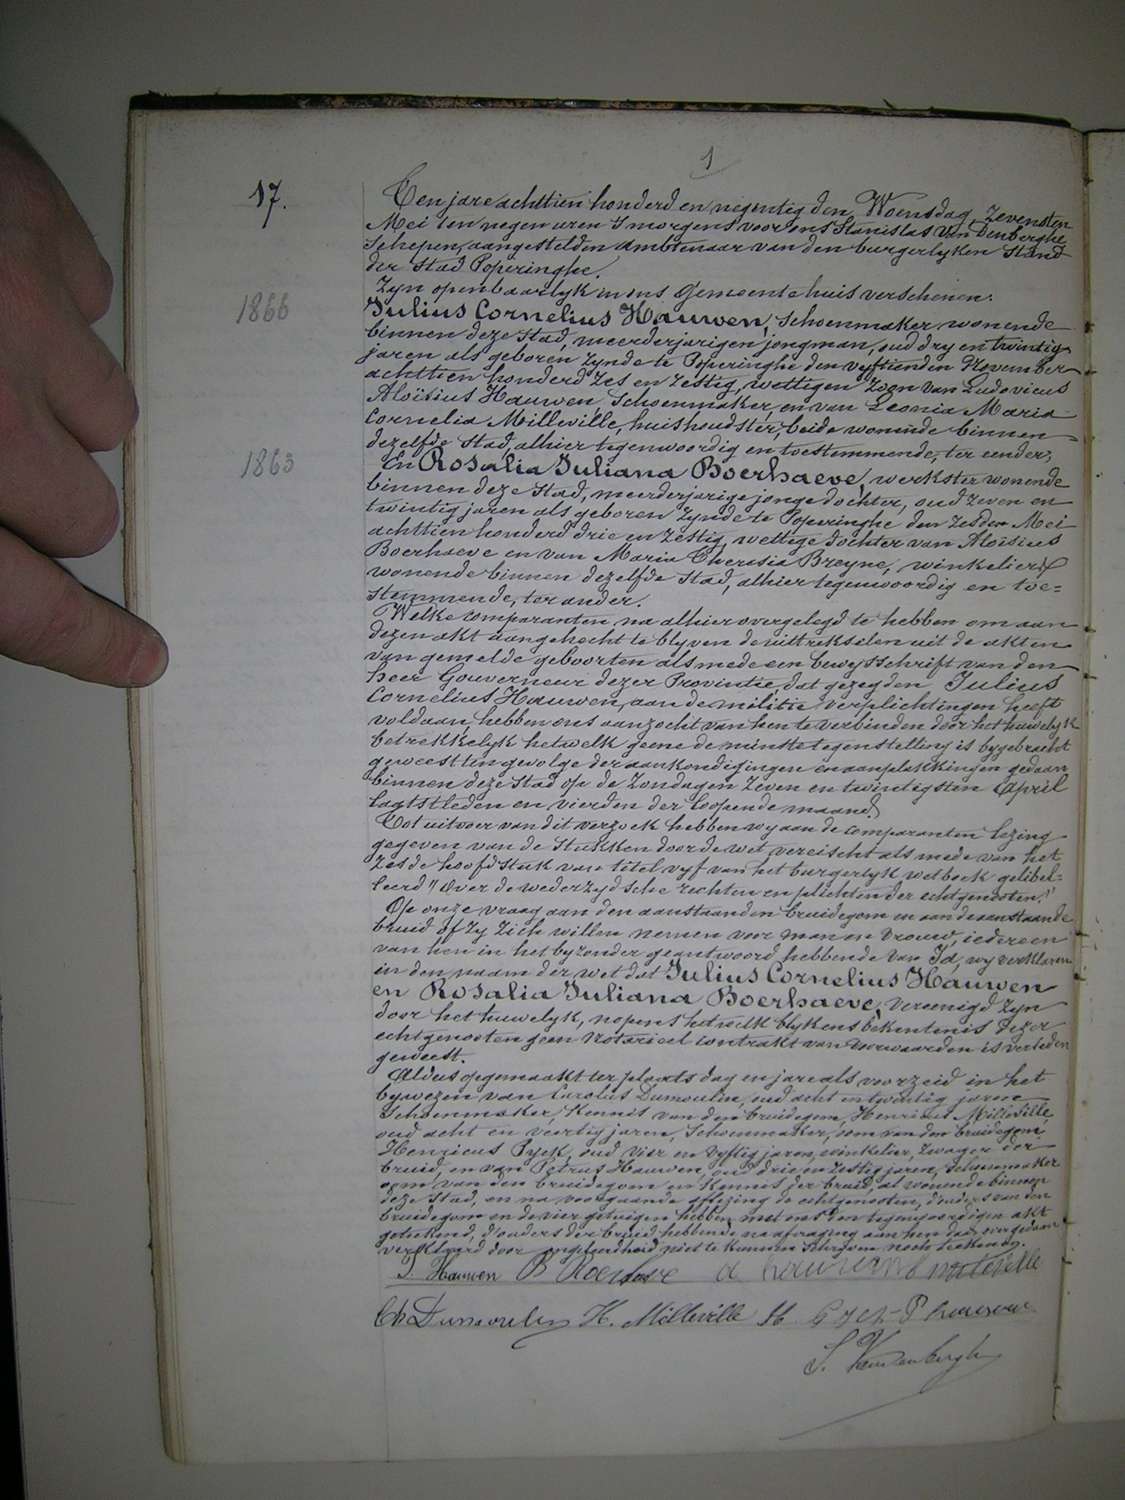 1
17.
Ten jare achttien honderd en negentig den Woensdag Zevensten
Mei ten negen uren 's morgens voor ons Stanislas Van Denberghe
Schepen, aangestelden Ambtenaar van den burgerlyken Stand
der Stad Poperinghe.
Zyn openbaarlyk in ons Gemeentehuis verschenen:
1866
Julius Cornelius Hauwen, Schoenmaker wonende
binnen deze Stad, meerderjarigen jongman, oud dry en twintig
jaren als geboren zynde te Poperinghe den vyftienden November
achttien honderd zes en zestig, wettigen zoon van Ludovicus
Aloïsius Hauwen, Schoenmaker en van Leonia Maria
Cornelia Milleville, huishoudster, beide wonende binnen
dezelfde Stad, alhier tegenwoordig en toestemmende, ter eender;
1863
En Rosalia Juliana Boerhaeve, werkster wonende
binnen deze Stad, meerderjarige jonge dochter, oud zeven en
twintig jaren als geboren zynde te Poperinghe den zesden Mei
achttien honderd drie en zestig, wettige dochter van Aloïsius
Boerhaeve en van Maria Theresia Breyne, winkeliers
wonende binnen dezelfde Stad, alhier tegenwoordig en toe=
stemmende, ter ander.
Welke Comparanten na alhier overgelegd te hebben om aan
dezen akt aangehecht te blyven de uittrekselen uit de akten
van gemelde geboorten alsmede een bewysschrift van den
heer Gouverneur dezer Provintie, dat gezegden Julius
Cornelius Hauwen, aan de militie verplichtingen heeft
voldaan, hebben ons aanzocht van hen te verbinden door het huwelyk
betrekkelyk hetwelk geene de minste tegenstelling is bygebracht
geweest ten gevolge der aankondigingen en aanplakkingen gedaan
binnen deze Stad op de Zondagen Zeven en twintigsten April
laatstleden en vierden der loopende maand.
Tot uitvoer van dit verzoek hebben wy aan de comparanten lezing
gegeven van de Stukken door de wet vereischt als mede van het
zesde hoofdstuk van titel vyf van het burgerlyk wetboek gelibel=
leerd "Over de wederzydsche rechten en plichten der echtgenoten."
Op onze vraag aan den aanstaanden bruidegom en aan de aanstaande
bruid of zy zich willen nemen voor man en vrouw, iedereen
van hen in het byzonder geantwoord hebbende van Ja, wy verklaren
in den naam der wet dat Julius Cornelius Hauwen
en Rosalia Juliana Boerhaeve, vereenigd zyn
door het huwelyk, nopens hetwelk blykens bekentenis dezer
echtgenooten geen Notarieel contrakt van voorwaarden is verleden
geweest.
Aldus opgemaakt ter plaats dag en jare als voorzeid in het
bywezen van Carolus Dumoulin, oud acht en twintig jaren
Schoenmaker, Kennis van den bruidegom, Henricus Milleville,
oud acht en veertig jaren, Schoenmaker, oom van den bruidegom,
Henricus Pyck, oud vier en vyftig jaren, winkelier, zwager der
bruid, en van Petrus Hauwen, oud drie en zestig jaren, Schoenmaker
oom van den bruidegom en Kennis der bruid, al wonende binnen
deze Stad, en na voorgaande aflezing de echtgenooten, d'ouders van den
bruidegom en de vier getuigen hebben met ons den tegenwoordigen akt
geteekend, d'ouders der bruid hebbende na afvraging aan hen daar over gedaan
verklaard door ongeleerdheid niet te kunnen Schryven noch teekenen.
J. Hauwen R Boerhave a hauwen C milleville
Ch Dumoulin H. Milleville H Pyck P hauwen
S. Vandenberghe